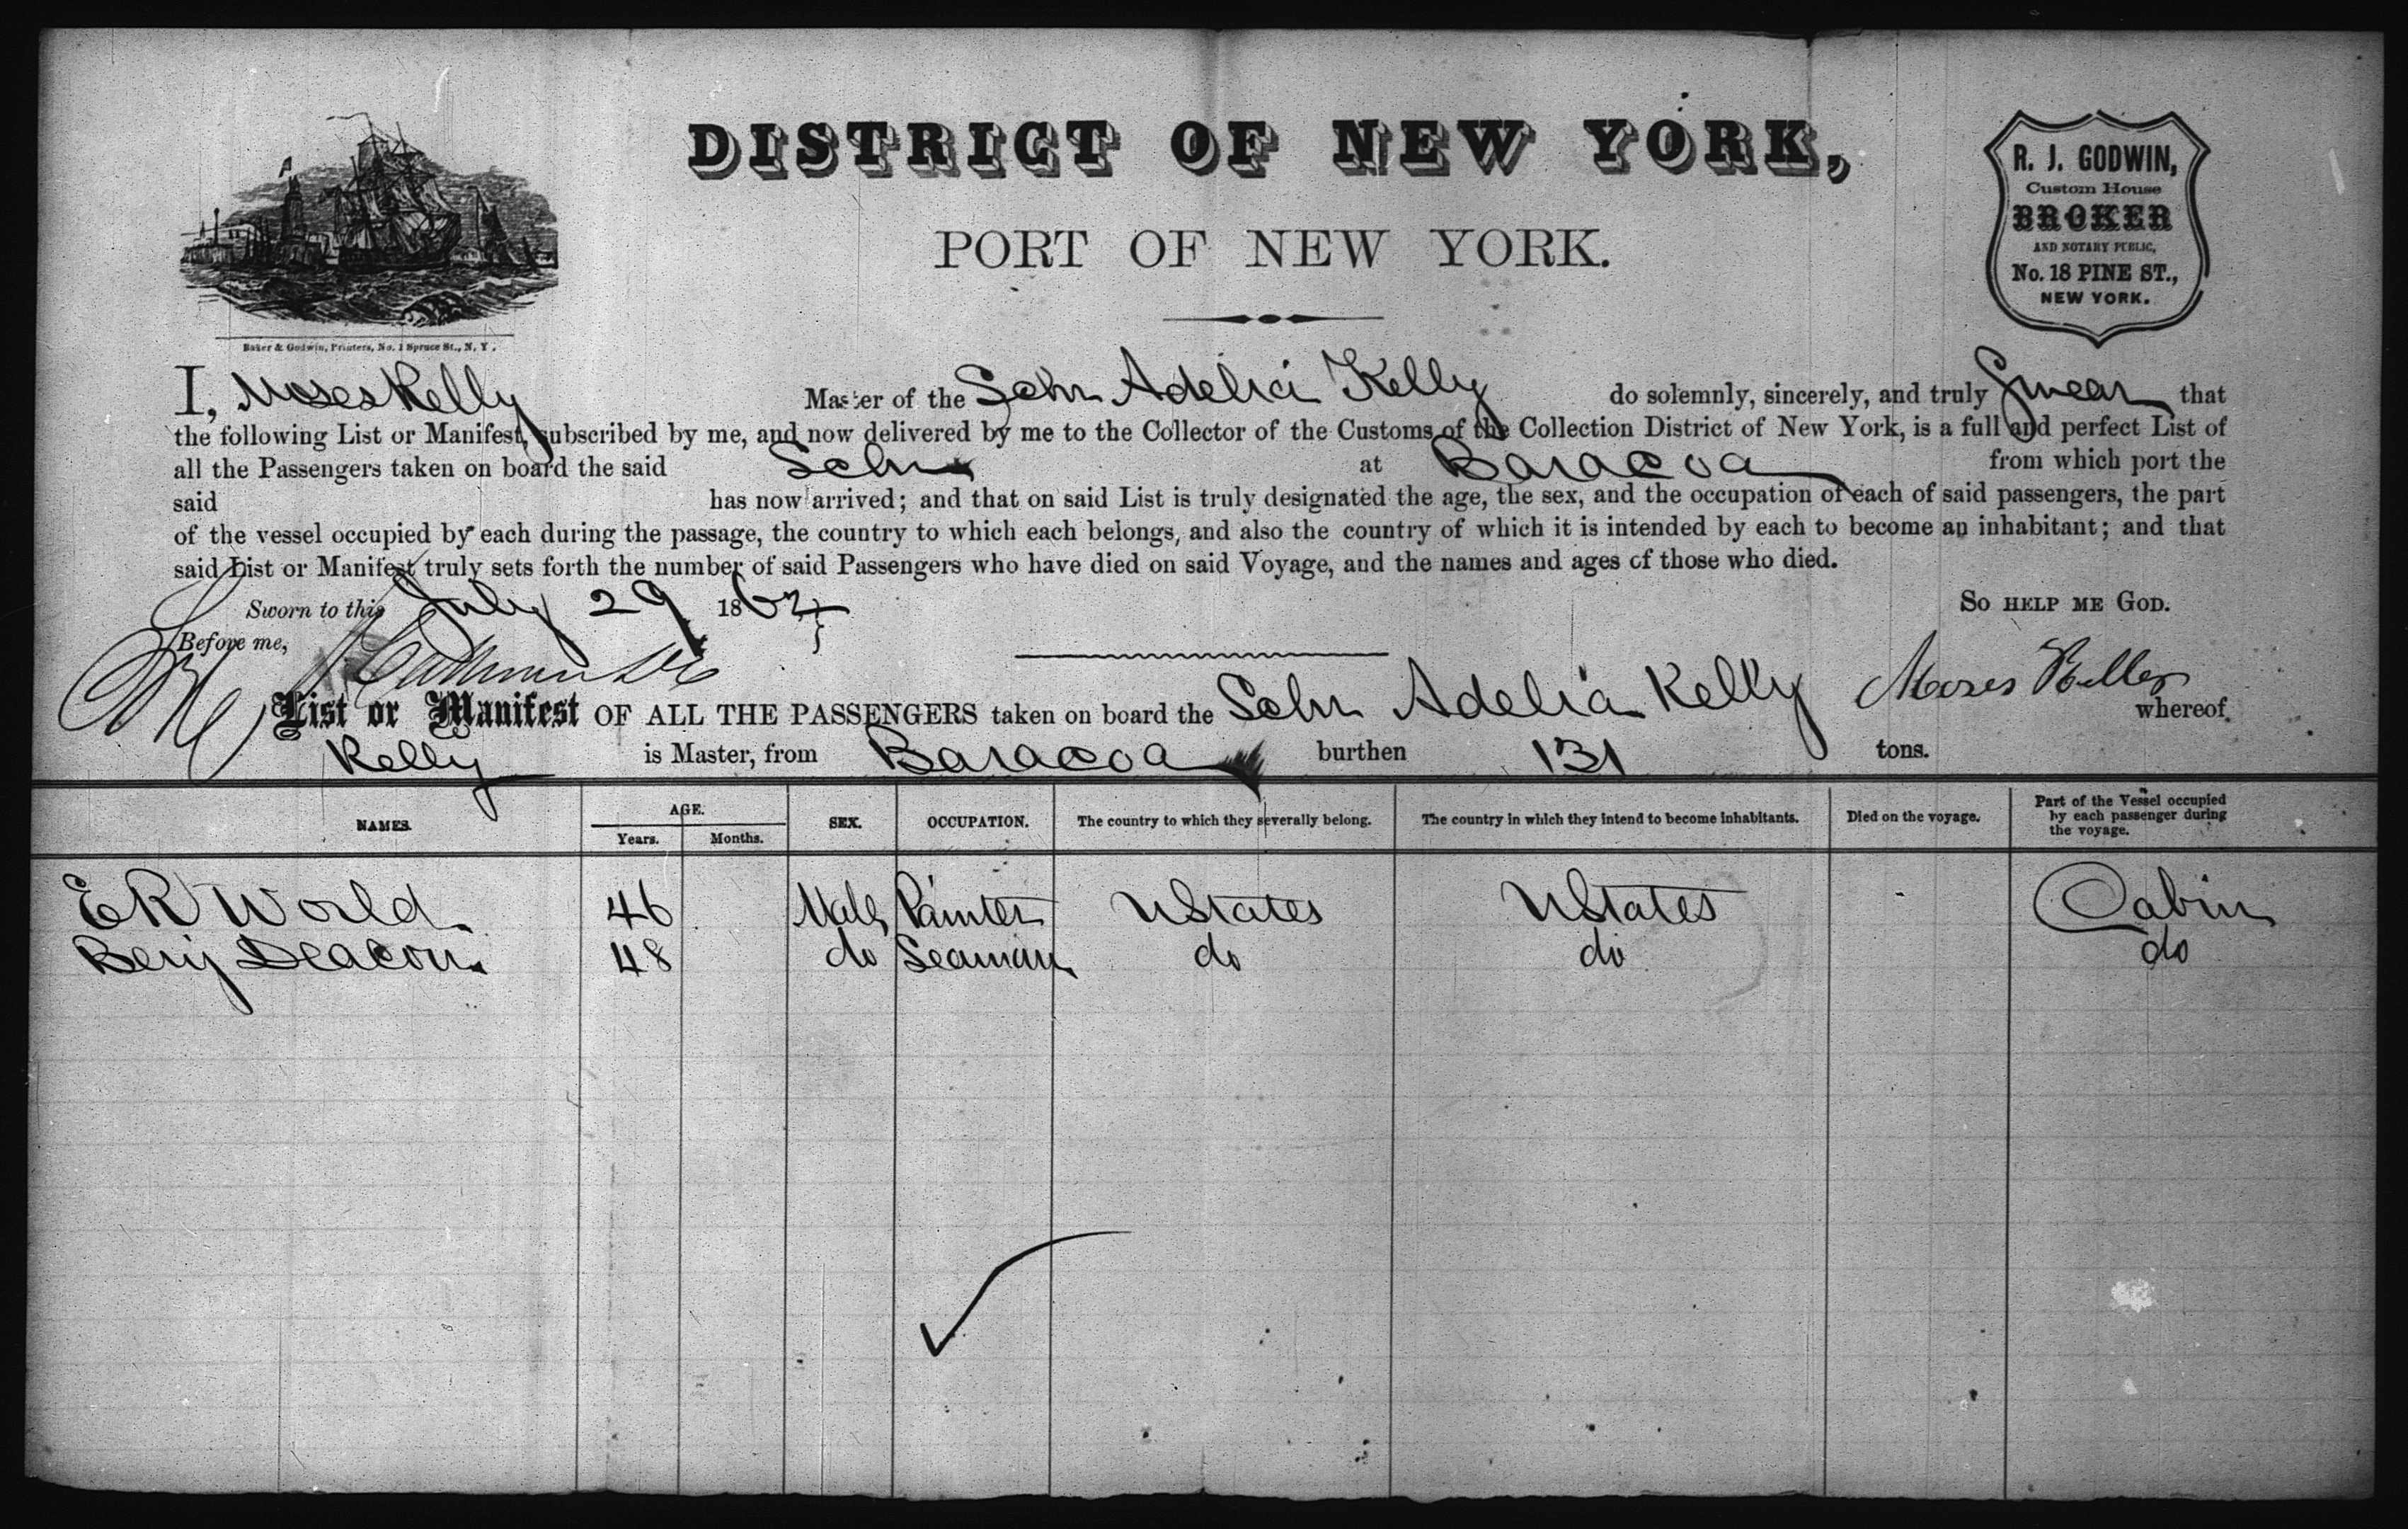 DISTRICT OF NEW YORK,
PORT OF NEW YORK.
R. J. GODWIN,
Custom House
BROKER
AND NOTARY PUBLIC,
No. 18 PINE ST.,
NEW YORK.
Baker & Godwin, Printers, No. 1 Spruce St., N. Y.
I, Moses Kelly Master of the Schr Adelia Kelly do solemnly, sincerely, and truly Swear that
the following List or Manifest, subscribed by me, and now delivered by me to the Collector of the Customs of the Collection District of New York, is a full and perfect List of
all the Passengers taken on board the said Schr at Baracoa from which port the
said has now arrived; and that on said List is truly designated the age, the sex, and the occupation of each of said passengers, the part
of the vessel occupied by each during the passage, the country to which each belongs, and also the country of which it is intended by each to become an inhabitant; and that
said List or Manifest truly sets forth the number of said Passengers who have died on said Voyage, and the names and ages of those who died.
Sworn to this July 29 1862 So HELP ME GOD.
Before me,
Moses Kelley
List or Manifest OF ALL THE PASSENGERS taken on board the Schr Adelia Kelly whereof
Kelly is Master, from Baracoa burthen 131 tons.
NAMES. AGE. SEX. OCCUPATION. The country to which they severally belong. The country in which they intend to become inhabitants. Died on the voyage. Part of the Vessel occupied by each passenger during the voyage.
Years. Months.
E R World 46 Male Painter UStates UStates - Cabin
Benj Deacon 48 do Seaman do do do